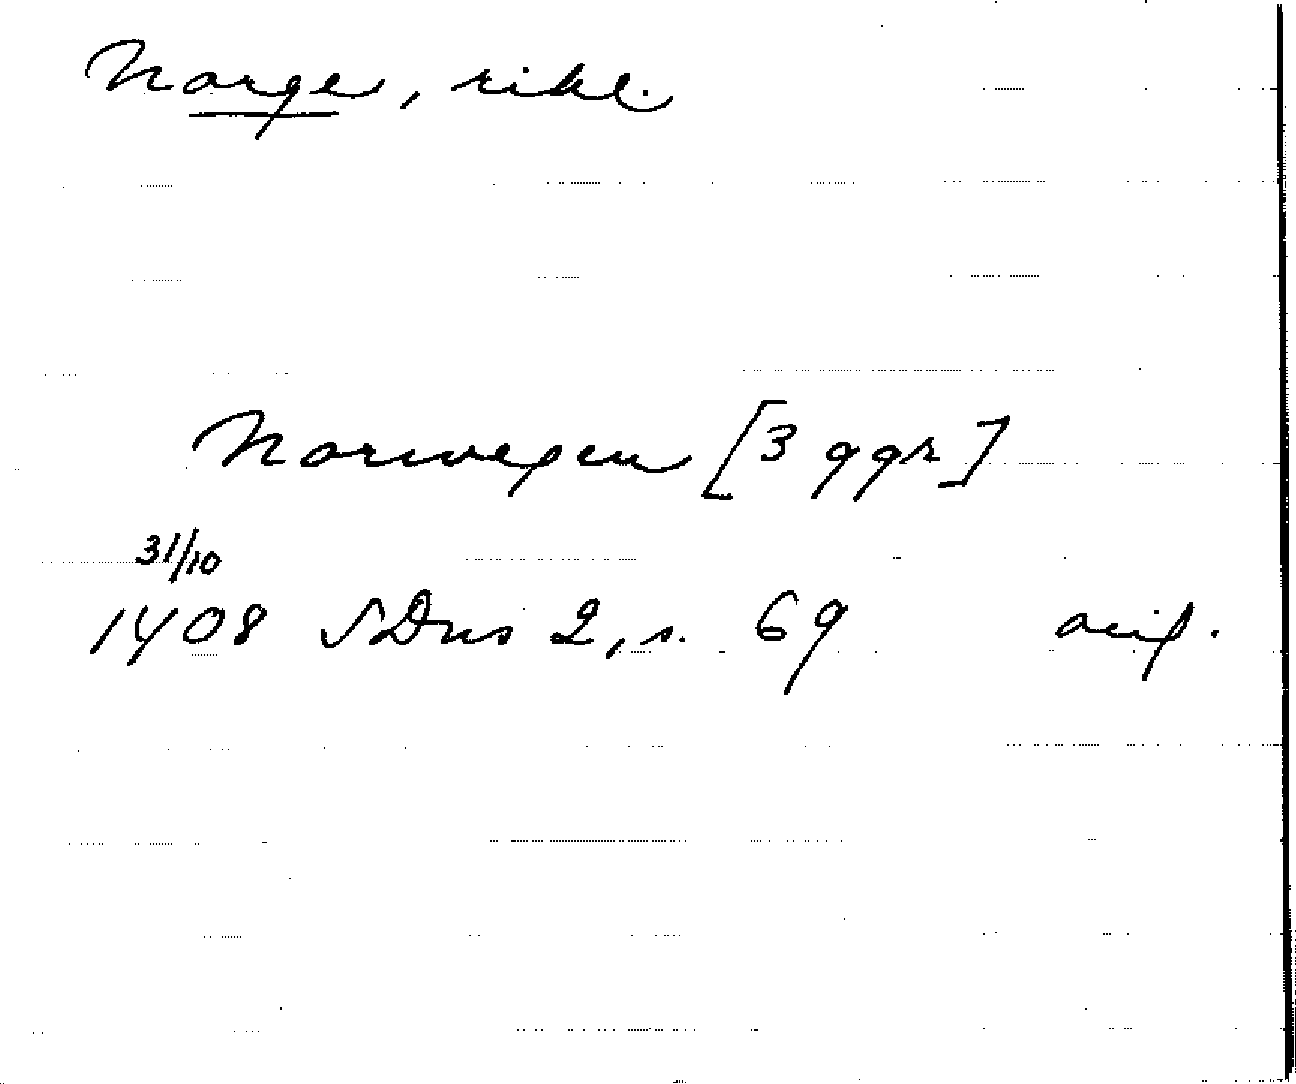 Norge, rike.
Norwegen [3 ggr]
31/10
1408 SDns 2, s. 69 avskr.